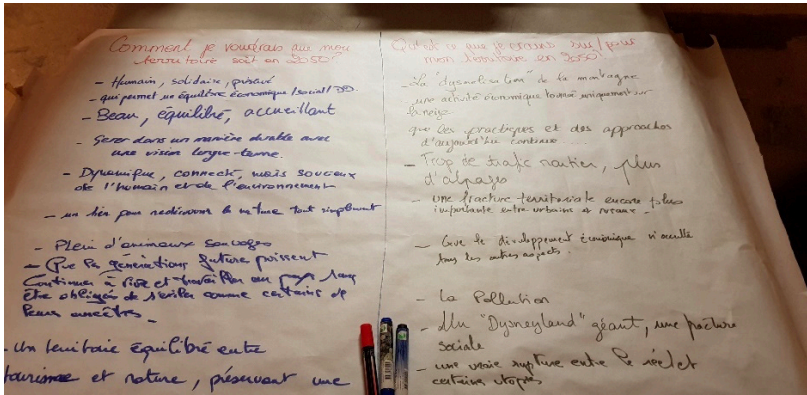 Comment je voudrais que mon
territoire soit en 2050?
- Humain, solidaire, préservé
- qui permet un équilibre économique/social/DD
- Beau, équilibré, accueillant
- Gérer dans une manière durable avec
une vision longue-terme.
- Dynamique, connecté, mais soucieux
de l'humain et de l'environnement
- un lien pour redécouvrir la nature tout simplement
- Plein d'animaux sauvages
- Que les générations future puissent
Continuer à vivre et travailler au pays sans
être obligées de s'exiler comme certains de
leurs ancêtres.
- Un territoire équilibré entre
tourisme et nature, préservant une
Qu'est ce que je crains sur/pour
mon territoire en 2050?
- La "dysneilisation" de la montagne
une activité économique tourné uniquement sur
la neige
que les practiques et des approches
d'aujourd'hui continue.....
- Trop de trafic routier, plus
d'alpages
- une fracture territoriale encore plus
importante entre urbains et ruraux.
- Que le développement économique n'occulte
tous les autres aspects.
- La Pollution
- Un "Dysneyland" géant, une fracture
sociale
- une vraie rupture entre le réel et
certaines utopies